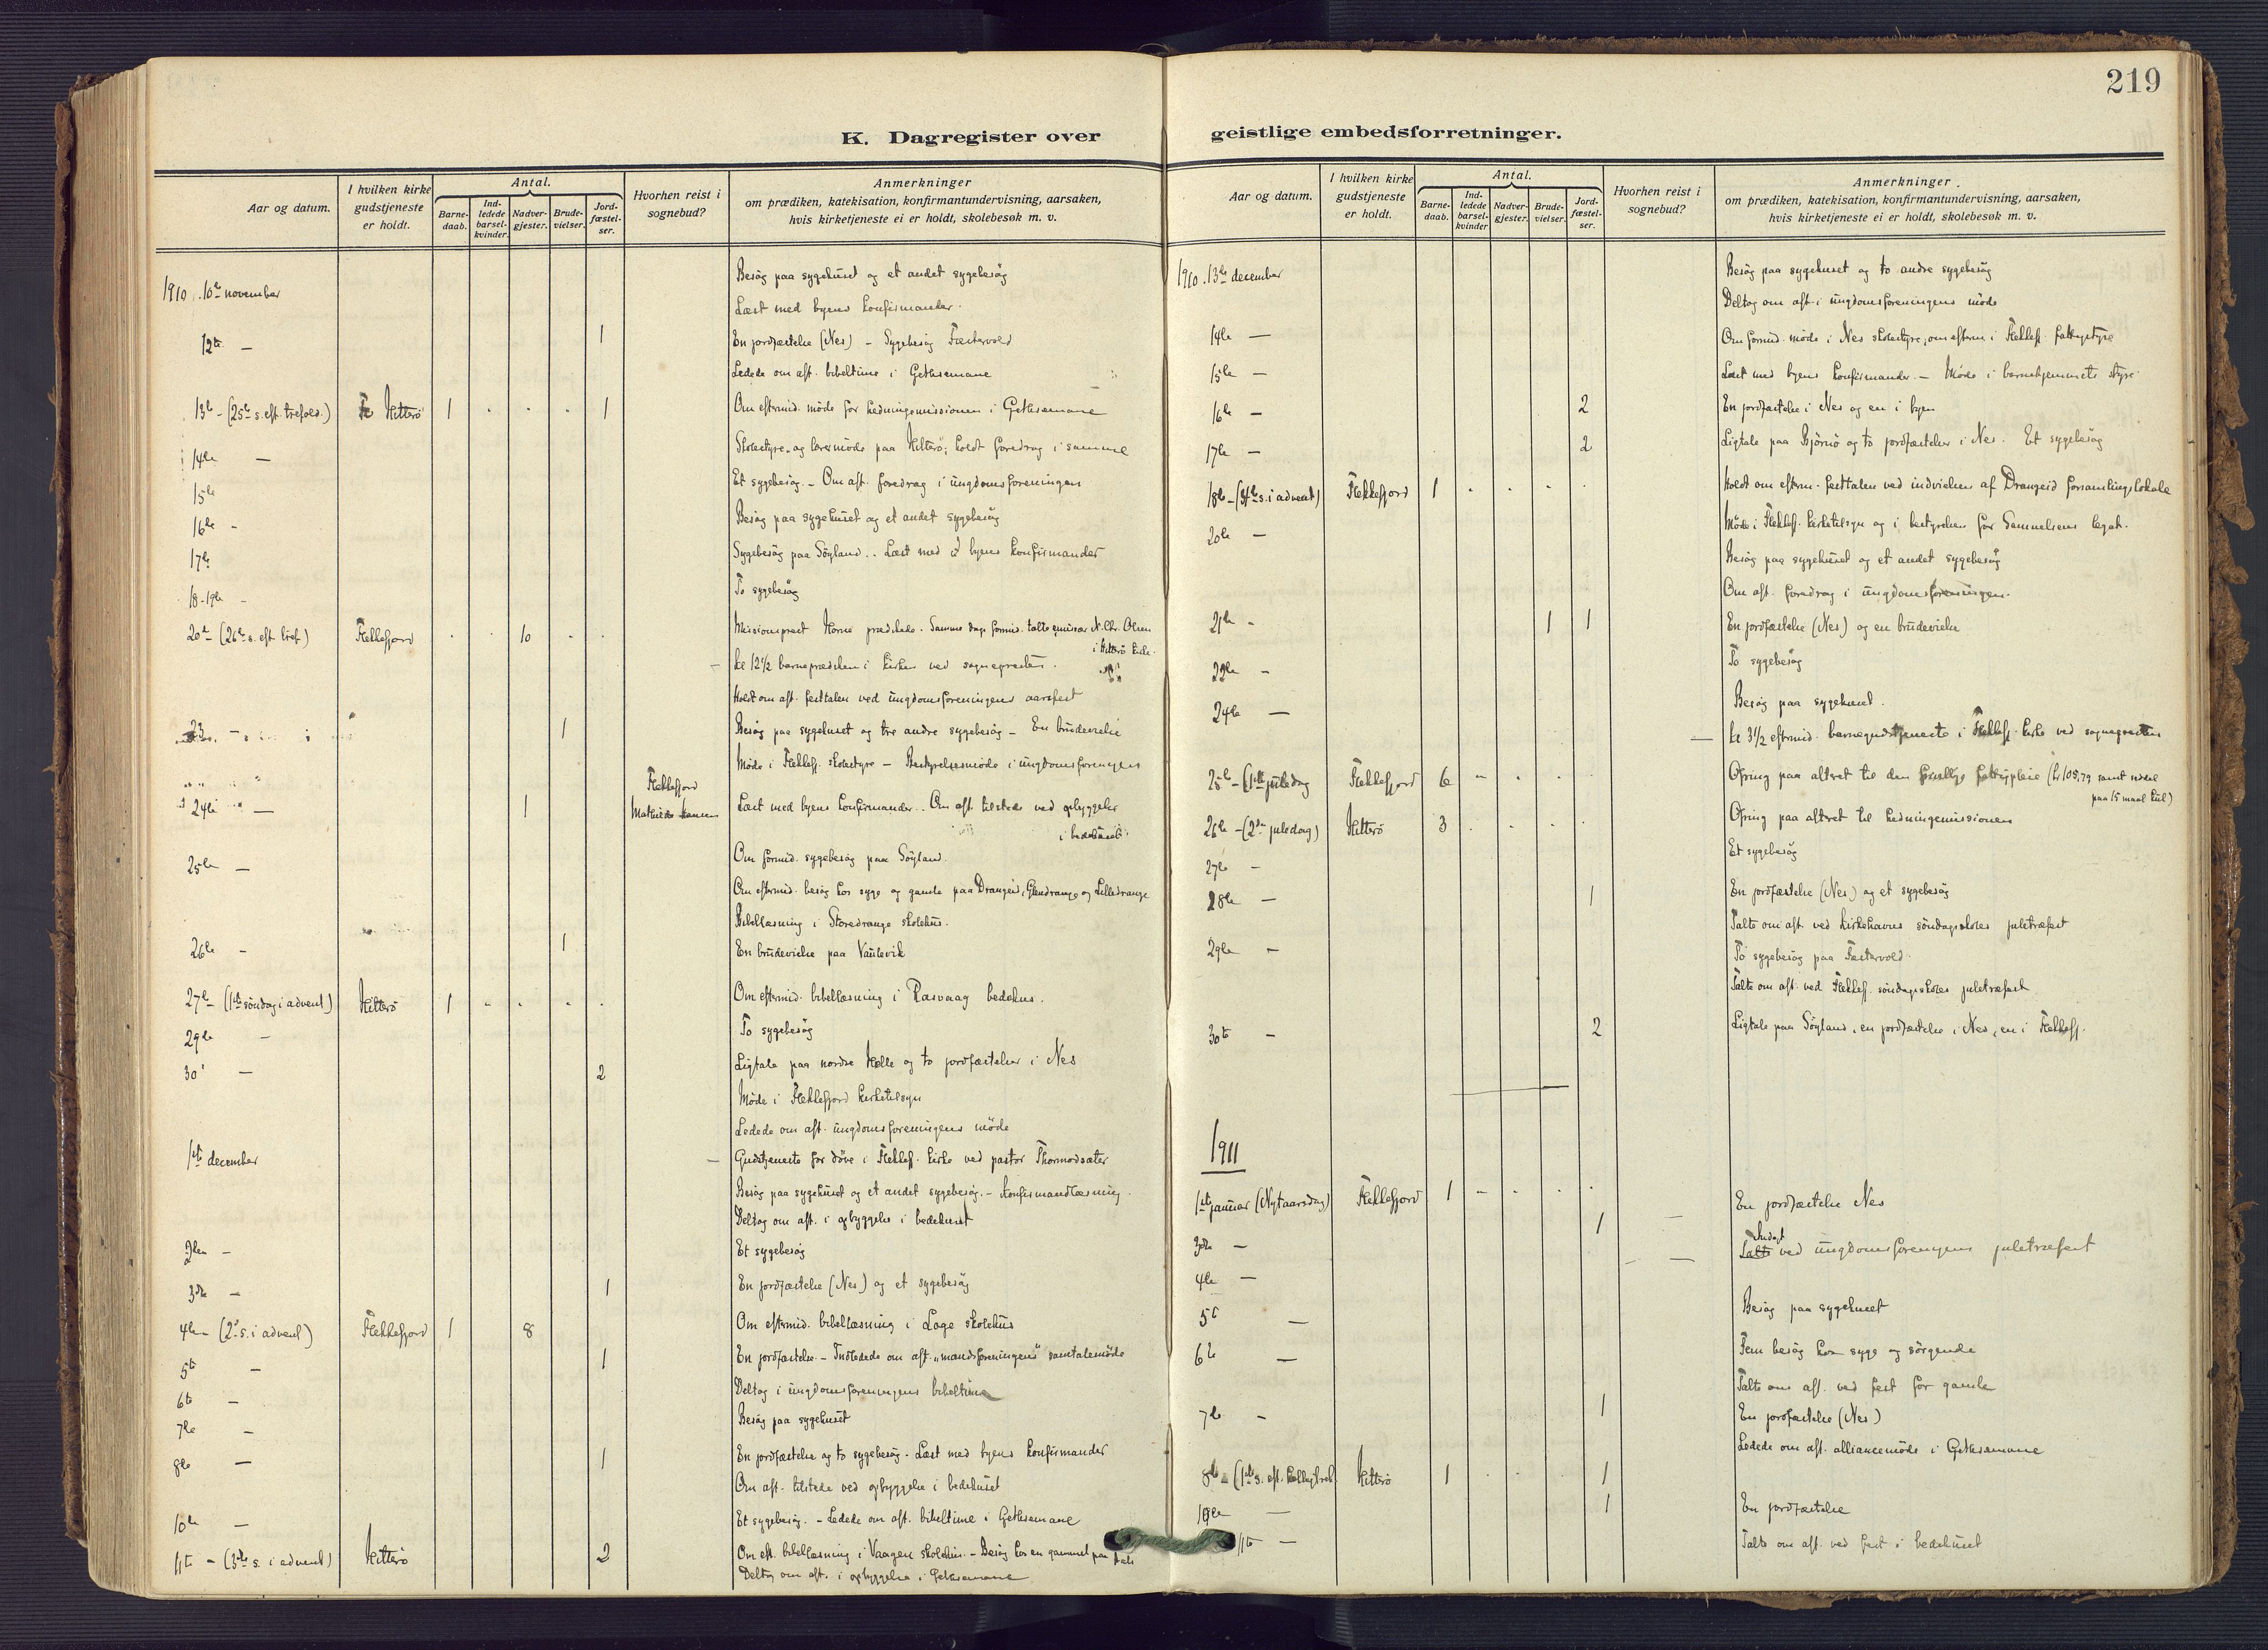 219
K. Dagregister over
geistlige embedsforretninger.
Aar og datum.
I hvilken kirke gudstjeneste er holdt.
Antal.
Barne-daab.
Ind-ledede barsel-kvinder.
Nadver-gjester.
Brude-vielser.
Jord-fæstel-ser.
Hvorhen reist i sognebud?
Anmerkninger
om prædiken, katekisation, konfirmantundervisning, aarsaken,
hvis kirketjeneste ei er holdt, skolebesøk m. v.
1910. 10de november Besög paa sygehuset og et andet sygebesög
Læst med byens konfirmander.
12te — 1 En jordfæstelse (Nes) – Sygebesög Fæstervold
Ledede om aft. bibeltime i Gethsemane
13de – (25de s. eft. trefold.) Hitterö 1 . . . . 1 Om eftermid. möde for hedningemissionen i Gethsemane
14de — Skolestyre- og læremöde paa Hitterö; holdt foredrag i samme
15de Et sygebesög. – Om aft. foredrag i ungdomsforeningen
16de – Besög paa sygehuset og et andet sygebesög
17de Sygebesög paa Söyland. – Læst med byens konfirmander
18-19de – To sygebesög
20de (26de s. eft. tref.) Flekkefjord . . 10 . . Missionsprest Horne prædikede. Samme dags formid. talte emissær N. Chr. Olsen
i Hitterö kirke.
kl 12½ barneprædiken i kirken ved sognepresten.
Holdt om aft. festtalen ved ungdomsforeningens aarsfest
23. – 1 Besög paa sygehuset og tre andre sygebesög – En brudevielse
Möde i Flekkefj. skolestyre – Bestyrelsesmöde i ungdomsforeningen
Flekkefjord
24de — 1 Mathilde Hansen Læst med byens konfirmander. – Om aft. tilstede ved opbyggelse
i bedehuset
25de — Om formid. sygebesög paa Söyland.
Om eftermid. besög hos syge og gamle paa Drangeid, Glendrange og Lilledrange
Bibellæsning i Storedrange skolehus.
26de – 1 En brudevielse paa Vaulevik
27de – (1ste söndag i advent) Hitterö 1 . . . . Om eftermid. bibellæsning i Rasvaag bedehus.
29de – To sygebesög
30' — 2 Ligtale paa nordre Helle og to jordfæstelser i Nes
Möde i Flekkefjord kirketilsyn
Ledede om aft. ungdomsforeningens möde
1ste december Gudstjeneste for döve i Flekkef. kirke ved pastor Thormodsæter
Besög paa sygehuset og et andet sygebesög. – Konfirmandlæsning.
Deltog om aft. i opbyggelse i bedehuset
2den – Et sygebesög
3die – 1 En jordfæstelse (Nes) og et sygebesög
4de – (2' s. i advent) Flekkefjord 1 8 Om eftermid. bibellæsning i Loge skolehus
5te – 1 En jordfæstelse. – Indledede om aft. „mandsforeningens" samtalemöde
6te – Deltog i ungdomsforeningens bibeltime
7de – Besög paa sygehuset
8de — 1 En jordfæstelse og to sygebesög. Læst med byens konfirmander
Om aft. tilstede ved opbyggelse i bedehuset
10de — Et sygebesög. – Ledede om aft. bibeltime i Gethsemane
11te – (3die s. i advent) Hitterö 2 Om eft. bibellæsning i Vaagen skolehus. – Besög hos en gammel paa
Deltog om aft. i opbyggelse i Gethsemane
Aar og datum.
I hvilken kirke gudstjeneste er holdt.
Antal.
Barne-daab.
Ind-ledede barsel-kvinder
Nadver-gjester.
Brude-vielser.
Jord-fæstel-ser.
Hvorhen reist i sognebud?
Anmerkninger.
om prædiken, katekisation, konfirmantundervisning, aarsaken,
hvis kirketjeneste ei er holdt, skolebesøk m. v.
1910. 13de december Besög paa sygehuset og to andre sygebesög
Deltog om aft. i ungdomsforeningens möde
14de — Om formid. möde i Nes skolestyre, om efterm. i Flekkef. fattigstyre
15de — Læst med byens konfirmander. – Möde i barnehjemmets styre
16de – 2 En jordfæstelse i Nes og en i byen
17de – 2 Ligtale paa Björnö og to jordfæstelser i Nes. Et sygebesög
18de – (4de s. i advent) Flekkefjord 1 . . . . Holdt om efterm. festtalen ved indvielsen af Drangeid forsamlingslokale
20de – Möde i Flekkef. kirketilsyn og i bestyrelsen for Samuelsens legat.
Besög paa sygehuset og et andet sygebesög
Om aft. foredrag i ungdomsforeningen.
21de – 1 1 En jordfæstelse (Nes) og en brudevielse
22de – To sygebesög
24de — Besög paa sygehuset.
kl 3½ eftermid. barnegudstjeneste i Flekkef. kirke ved sognepresten
25de – (1ste juledag Flekkefjord 6 – . . . Ofring paa altret til den frivillige fattigpleie (kr 105,79 samt seddel
paa 15 maal kul)
26de – (2den juledag) Hitterö 3 . . . . Ofring paa altret til hedningemissionen
27de – Et sygebesög
28de — 1 En jordfæstelse (Nes) og et sygebesög
Talte om aft. ved Kirkehavns söndagsskoles juletræfest
29de – To sygebesög paa Fæstervold
Talte om aft. ved Flekkef. söndagsskoles juletræfest
30te – 2 Ligtale paa Söyland, en jordfæstelse i Nes, en i Flekkefj.
1911
1ste januar (Nytaarsdag) Flekkefjord 1 – . . .
1 En jordfæstelse Nes
3die – Talte ved ungdomsforeningens juletræfest
4de —
5te — Besög paa sygehuset
6te — Fem besög hos syge og sörgende
Talte om aft. ved fest for gamle
7de – 1 En jordfæstelse (Nes)
Ledede om aft. alliancemöde i Gethsemane
8de – (1ste s. eft. helligtrek. Hitterö 1 . . . 1
10de — 1 En jordfæstelse
11te — Talte om aft. ved fest i bedehuset